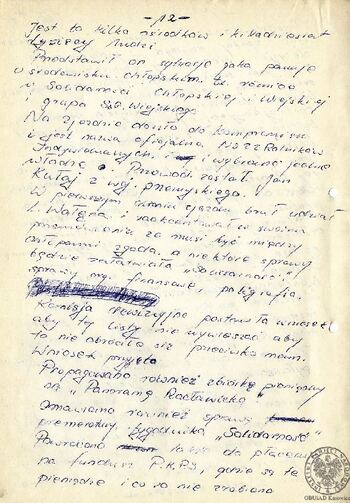 -12-
Jest to kilka ośrodków i kilkadziesiąt
tysięcy ludzi.
Przedstawił on sytuację jaka panuje
w środowisku chłopskim. tz. różnice
w Solidarności Chłopskiej i Wiejskiej
i grupa Sol. Wiejskiej.
Na zjeździe doszło do kompromisu
i jest nazwa oficjalna NSZZ Rolników
Indywidualnych. i wybrano jedne
władze. Przewod. został Jan
Kułaj z woj. przemyskiego.
W pierwszym dniu zjazdu brał udział
L. Wałęsa i zaakcentował w swoim
przemówieniu że musi być między
chłopami zgoda. a niektóre sprawy
będzie załatwiała „Solidarność"
sprawy np. finansowe, poligrafia.
Komisja rewizyjna postawiła wniosek
aby ty listy nie wywieszać aby
to nie obróciło się przeciwko nam.
Wniosek przyjęto
Propagowano również zbiórkę pieniędzy
na „Panoramę Racławicką"
Omawiano również sprawę
prenumeraty tygodnika „Solidarność"
Powrócono także do płacenia
na fundusz P.K.P.S, gdzie są te
pieniądze i co to nie zrobiono
OBUiAD Katowice